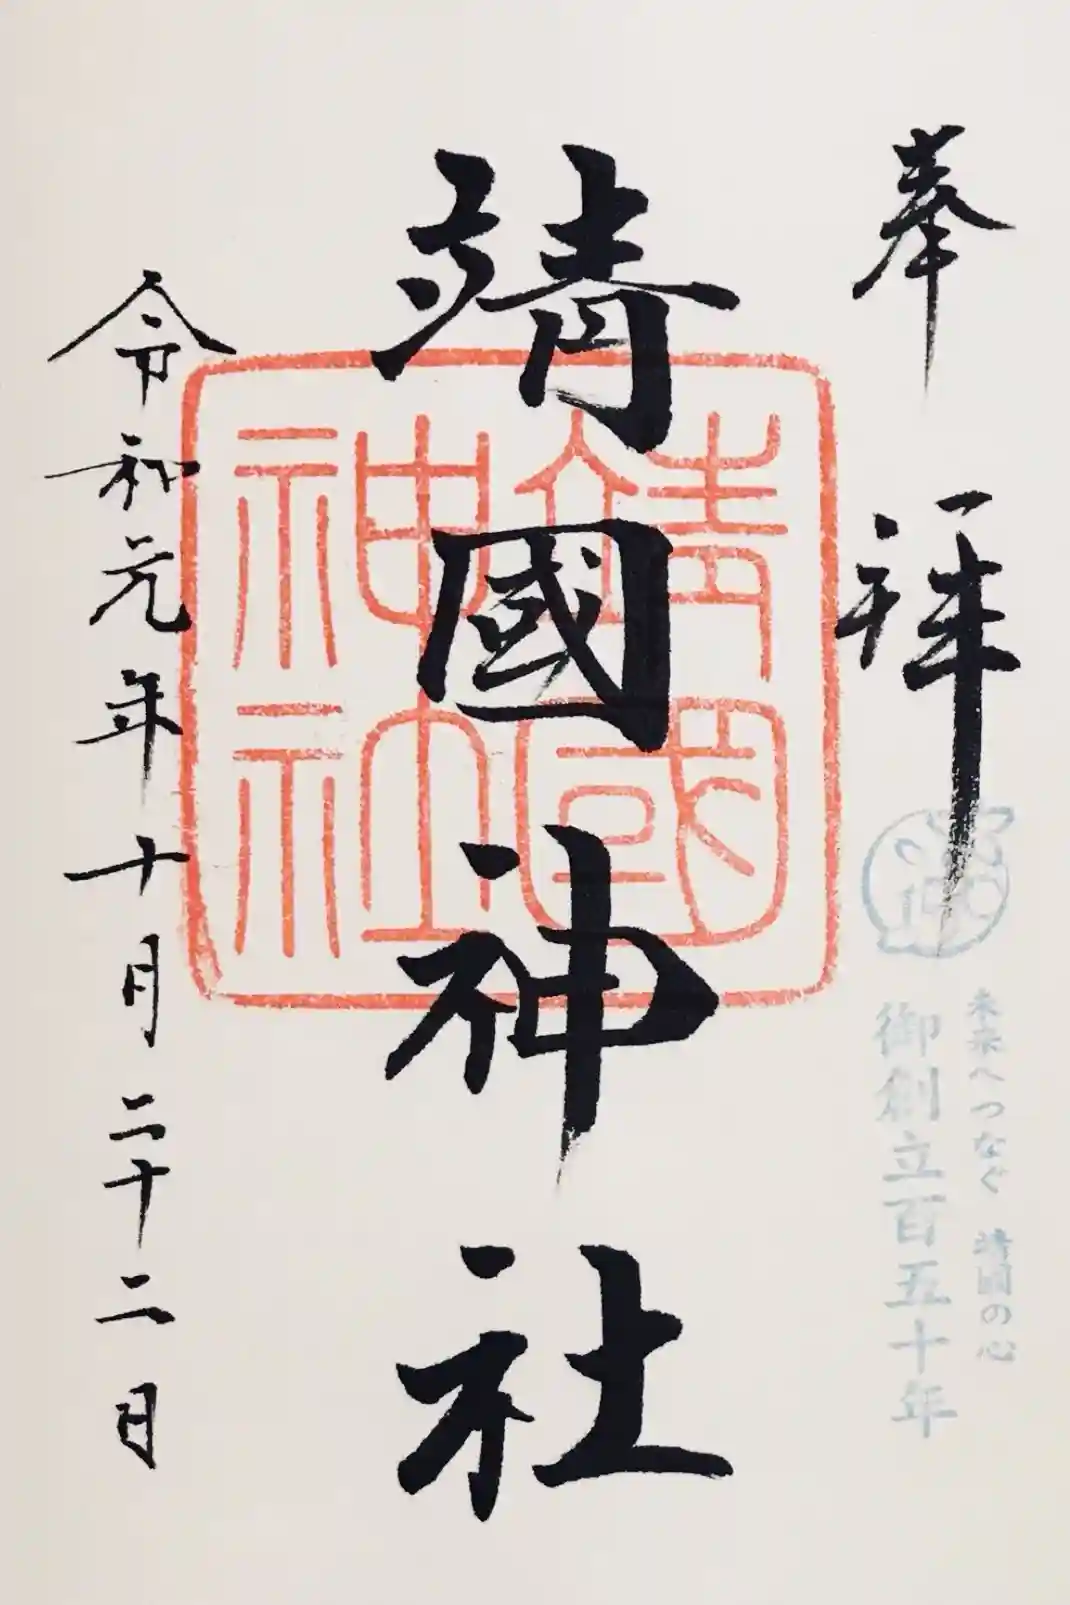 奉拝
未来へつなぐ 靖國の心
御創立百五十年
靖國神社
靖國神社
令和元年十月二十二日